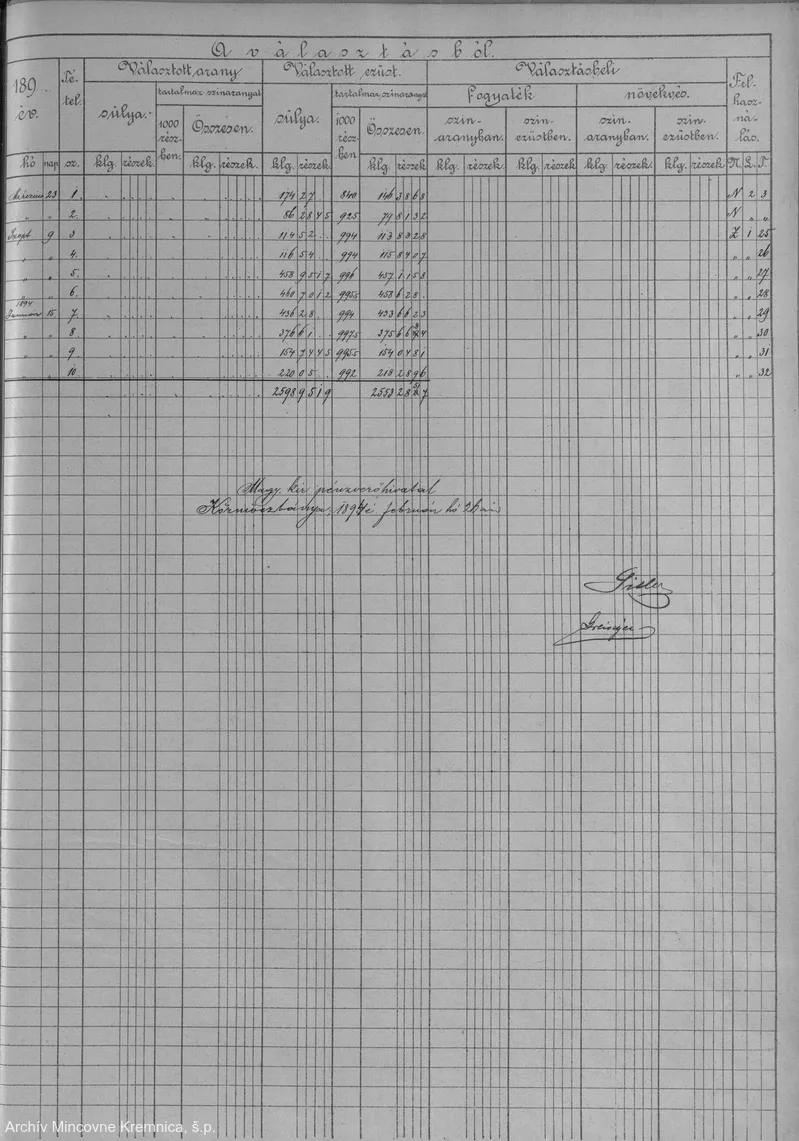 A választásból.
189 Té- Választott arany Választott ezüst. Választásbeli Fel-
év. tel. súlya. tartalmaz színaranyat súlya. tartalmaz színaranyat fogyaték növekvés. hasz-
1000 rész- ben. Összesen. 1000 rész- ben Összesen. szín- aranyban. szín- ezüstben. szín- aranyban. szín- ezüstben. ná- lás.
hó nap. sz. klg. részek. klg. részek. klg. részek. klg. részek klg. részek. klg. részek. klg. részek. klg. részek N. L. T.
Március 23 1. 174 27 840 146 3868 N 2 3
" " 2. 86 2845 925 79 8132 N " "
Szept 9 3 114 52 994 113 8328 Z 1 25
" " 4. 116 54 994 115 8407 " " 26
" " 5. 458 9517 996 457 1158 " " 27
" " 6. 460 7012 9955 458 628 " " 28
1894
Január 15 7. 436 28 994 433 6623 " " 29
" " 8 376 61 9975 375 " " 30
" " 9 154 7445 9955 154 0481 " " 31
" " 10. 220 05 992 218 2896 " " 32
2598 9519 2553
Magy. kir. pénzverőhivatal
Körmöczbánya, 1894 é. február hó 26 án
Archív Mincovne Kremnica, š.p.